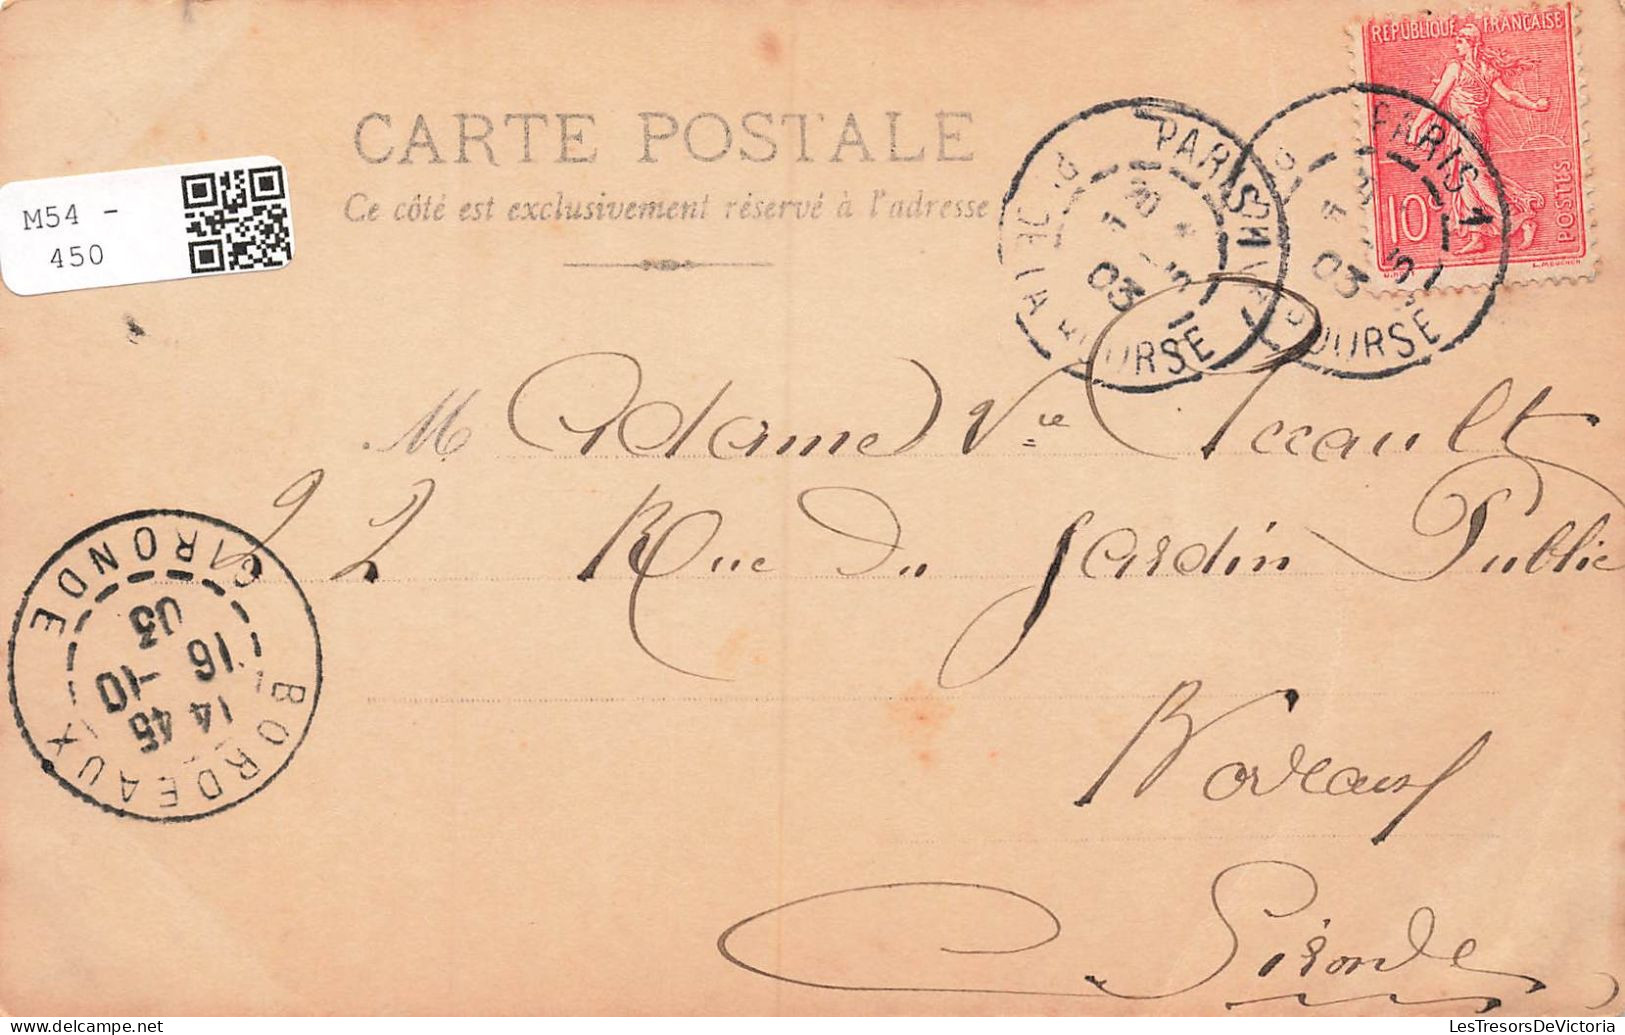 RÉPUBLIQUE FRANÇAISE
10c
POSTES
CARTE POSTALE
Ce côté est exclusivement réservé à l'adresse
M54 -
450
PARIS
03
BOURSE
PARIS 1
03
BOURSE
Madame Vve Accault
22 Rue Du Jardin Public
Bordeaux
Gironde
BORDEAUX
GIRONDE
14 45
16 -10
03
LesTresorsDeVictoria